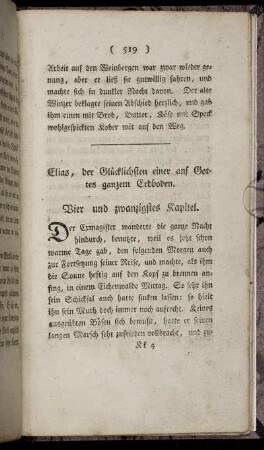 ( 519 )
Arbeit auf den Weinbergen war zwar wieder ge-
nung, aber er ließ sie gutwillig fahren, und
machte sich in dunkler Nacht davon. Der alte
Winzer beklagte seinen Abschied herzlich, und gab
ihm einen mit Brod, Butter, Käse und Speck
wohlgespickten Kober mit auf den Weg.
Elias, der Glücklichsten einer auf Got-
tes ganzem Erdboden.
Vier und zwanzigstes Kapitel.
Der Exmagister wanderte die ganze Nacht
hindurch, benutzte, weil es jetzt schon
warme Tage gab, den folgenden Morgen auch
zur Fortsetzung seiner Reise, und machte, als ihm
die Sonne heftig auf den Kopf zu brennen an-
fing, in einem Eichenwalde Mittag. So sehr ihn
sein Schicksal auch hatte sinken lassen: so hielt
ihn sein Muth doch immer noch aufrecht. Keines
ausgeübten Bösen sich bewußt, hatte er seinen
langen Marsch sehr zufrieden vollbracht, und zu-
Kk 4